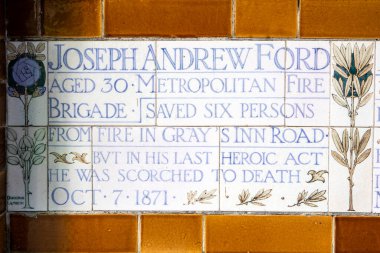 JOSEPH ANDREW FORD
AGED 30 · METROPOLITAN FIRE
BRIGADE · SAVED SIX PERSONS
FROM FIRE IN GRAY'S INN ROAD ·
BVT IN HIS LAST HEROIC ACT
HE WAS SCORCHED TO DEATH
OCT · 7 · 1871 ·